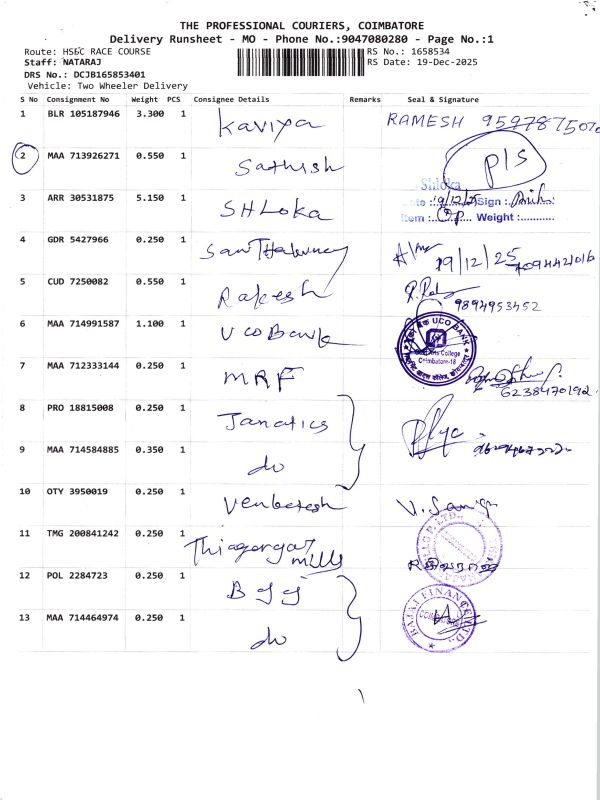 THE PROFESSIONAL COURIERS, COIMBATORE
Delivery Runsheet - MO - Phone No.:9047080280 - Page No.:1
Route: HSEC RACE COURSE RS No.: 1658534
Staff: NATARAJ RS Date: 19-Dec-2025
DRS No.: DCJB165853401
Vehicle: Two Wheeler Delivery
S No Consignment No Weight PCS Consignee Details Remarks Seal & Signature
1 BLR 105187946 3.300 1 Kaviya RAMESH
2 MAA 713926271 0.550 1 Sathish P/S
3 ARR 30531875 5.150 1 SHLOKA Shloka
19/12/25 Sign :
Item : Weight :
4 GDR 5427966 0.250 1 19/12/25
5 CUD 7250082 0.550 1 Rakesh 9894953452
6 MAA 714991587 1.100 1 UCO Bank UCO BANK
Arts College
Coimbatore-18
7 MAA 712333144 0.250 1 MRF 6238470192
8 PRO 18815008 0.250 1 Janatics
9 MAA 714584885 0.350 1 do
10 OTY 3950019 0.250 1 Venketesh
11 TMG 200841242 0.250 1 Thiagarajar mills
12 POL 2284723 0.250 1 BJJ
13 MAA 714464974 0.250 1 do BAJAJ FINANCE LTD.